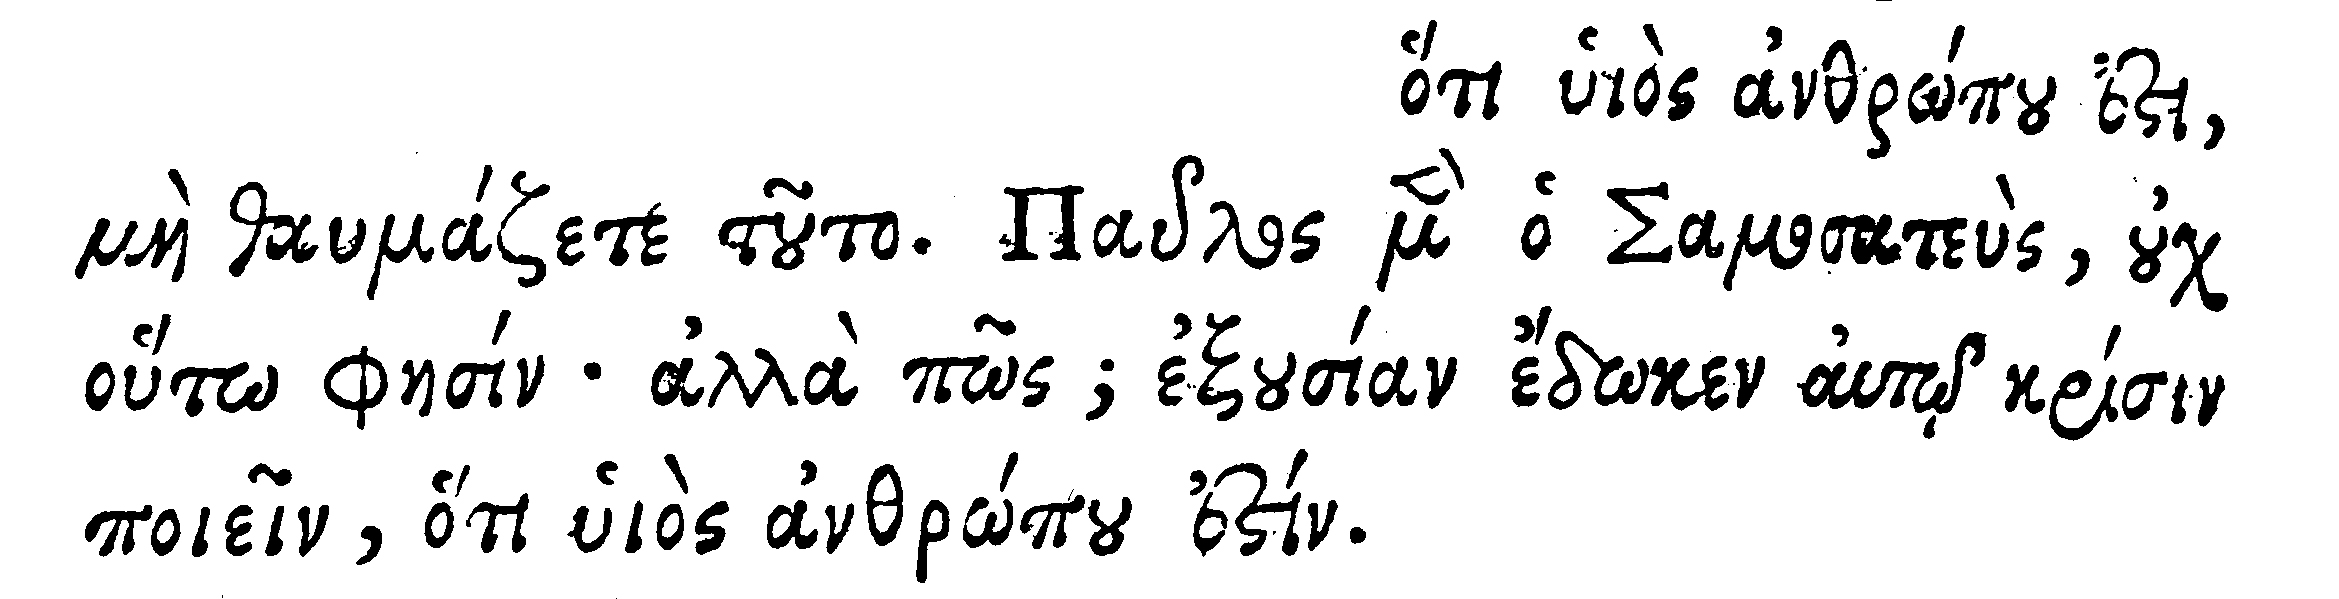 ὅτι ὑιὸς ἀνθρώπου ἐστι,
μὴ θαυμάζετε τοῦτο. Παῦλος μὲν ὁ Σαμοσατεὺς, οὐχ
οὕτω φησίν· ἀλλὰ πῶς; ἐξουσίαν ἔδωκεν ἀυτῷ κρίσιν
ποιεῖν, ὅτι ὑιὸς ἀνθρώπου ἐστίν.